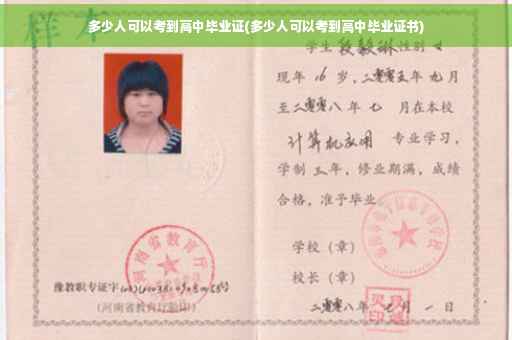 多少人可以考到高中毕业证(多少人可以考到高中毕业证书)
样本
学生 段毅琳 性别 女
现年 16 岁，二零零五年 九月
至二零零八年 七 月在本校
计算机应用 专业学习，
学制 三年，修业期满，成绩
合格，准予毕业
学校（章）
校长（章）
河南省教育厅
豫教职专证字
(河南省教育厅验印)
二零零八年 七 月 一 日